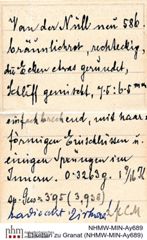 Van der Nüll neu 586.
bräunlichrot, rechteckig,
die Ecken etwas gerundet,
Schliff gemischt, 7·5:6·5 mm
einfachbrechend, mit haar=
förmigen Einschlüssen u
einigen Sprüngen im
Innern. 0·3263g.
sp. Gew = 3·95 (3,938)
nhm
NHMW-MIN-Ay689
Etiketten zu Granat (NHMW-MIN-Ay689)